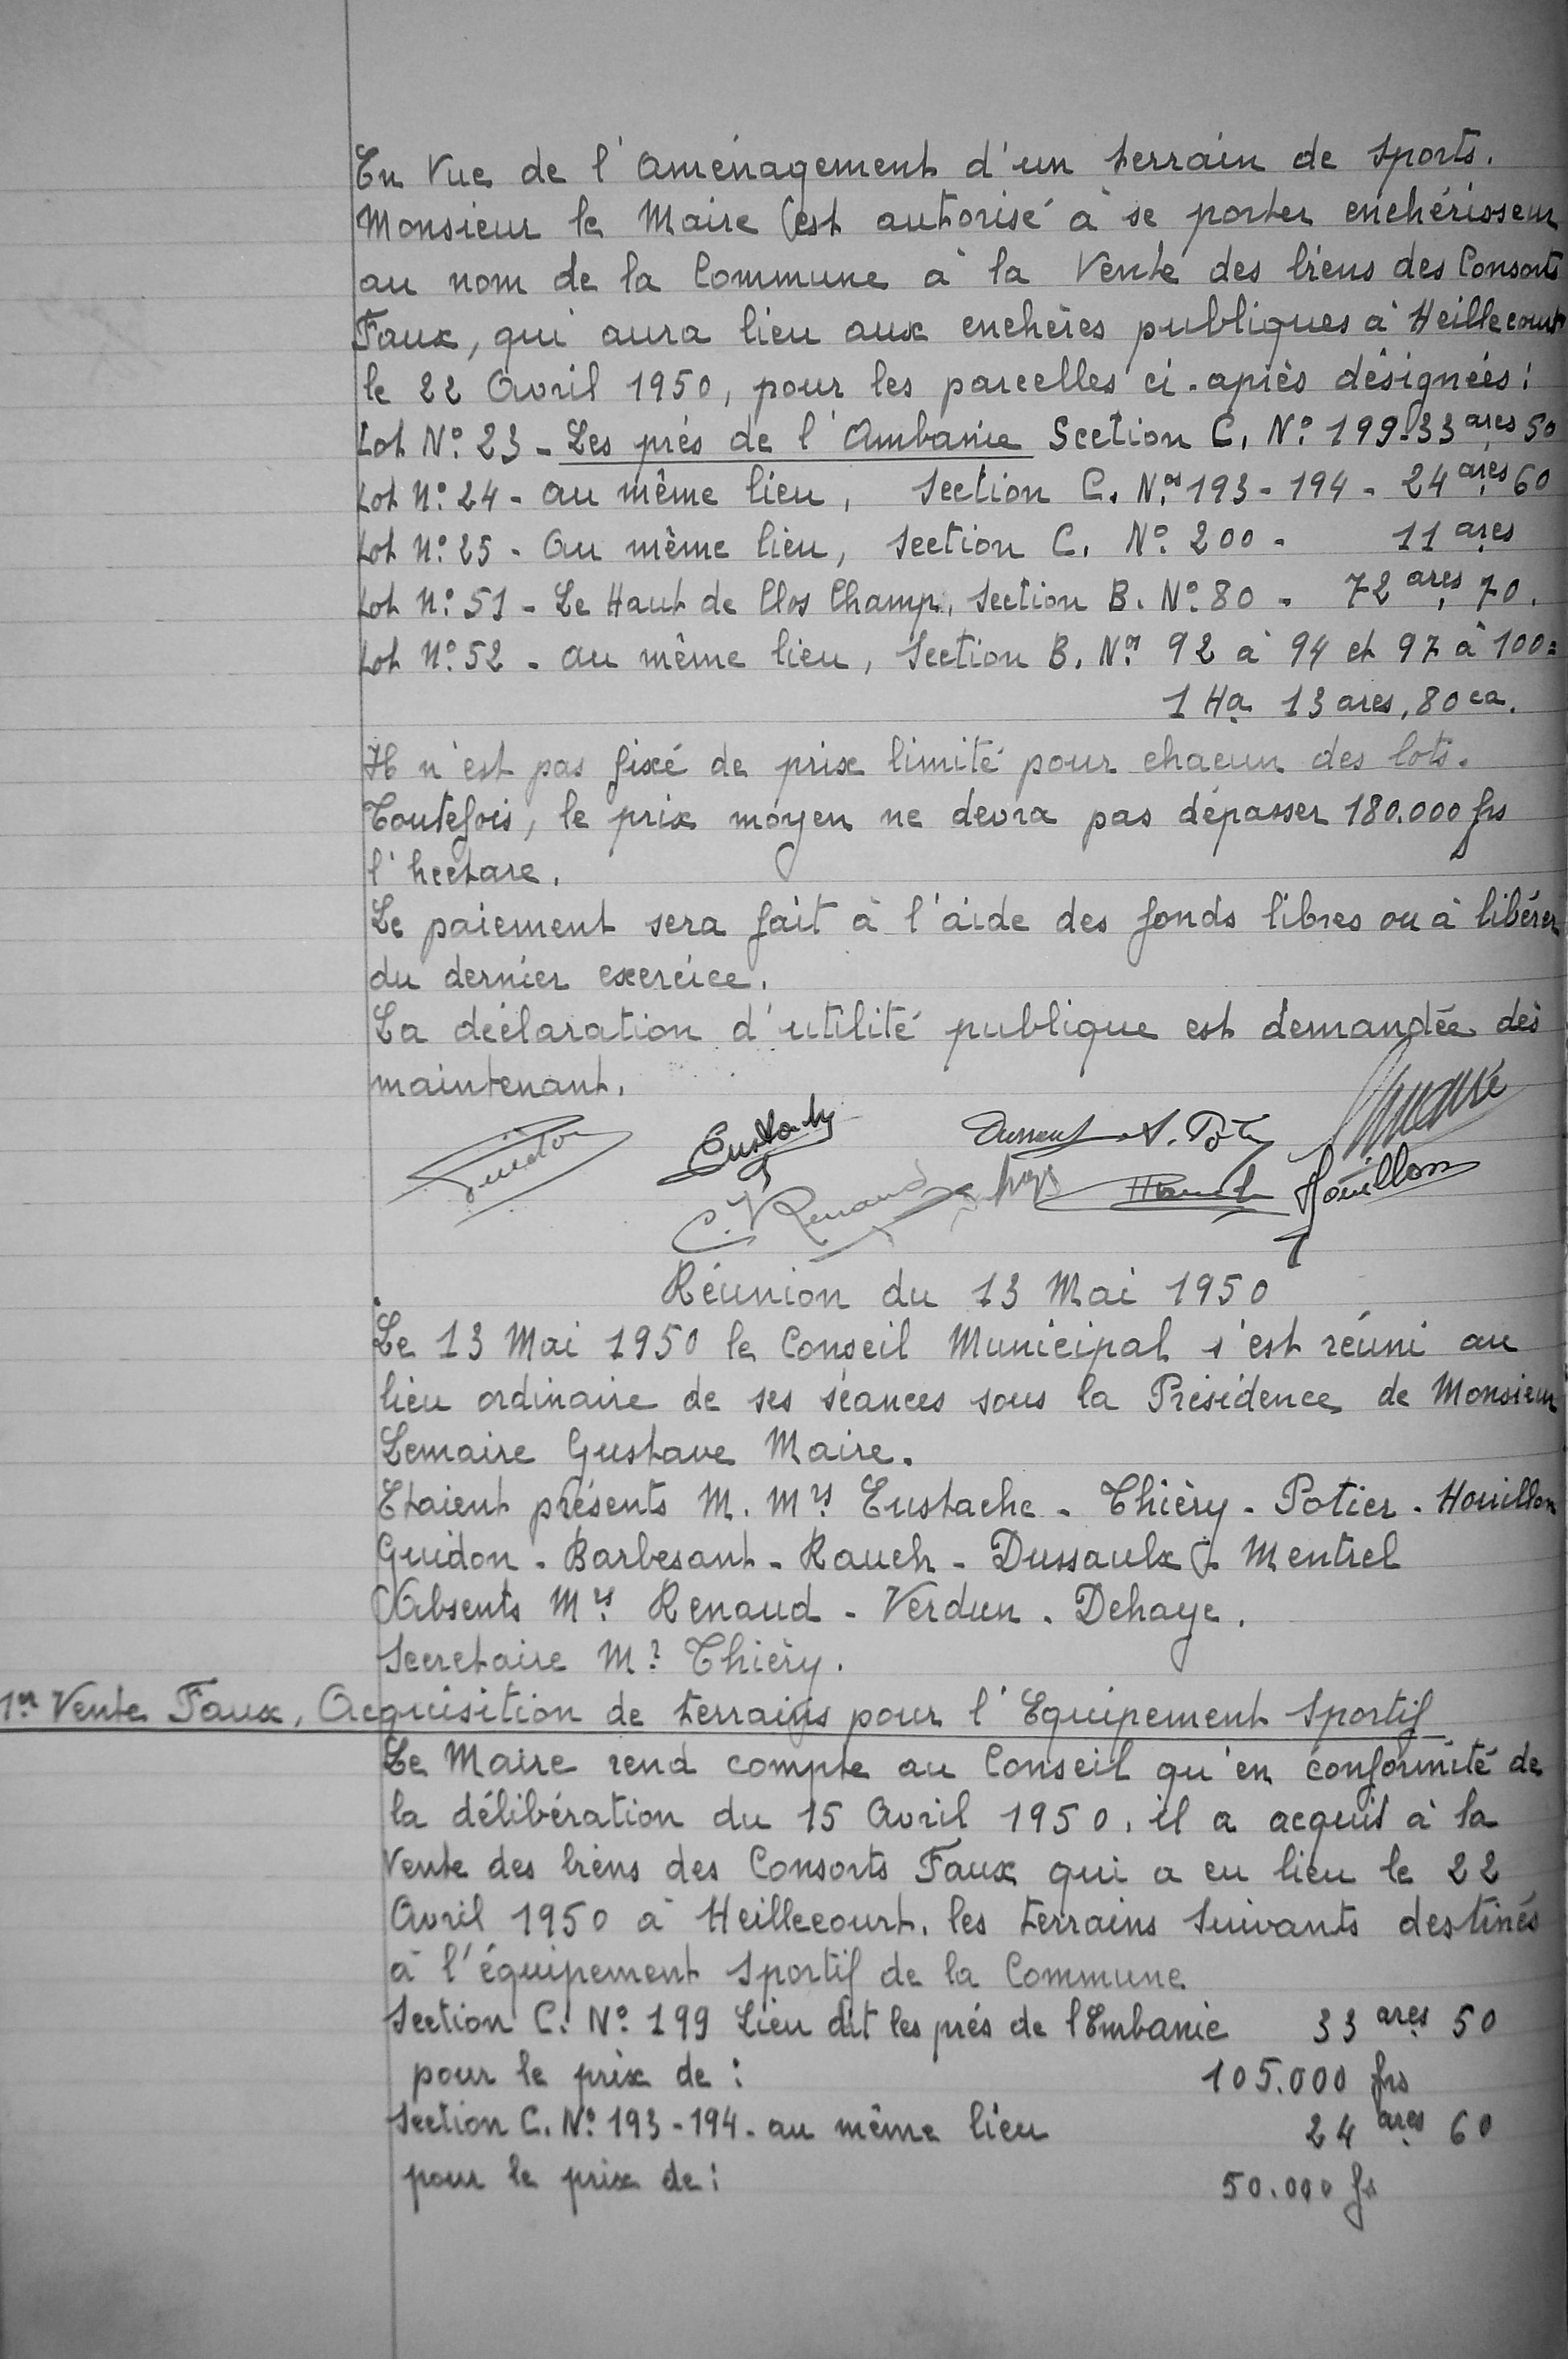 En Vue de l'Aménagement d'un terrain de Sports.
Monsieur le Maire est autorisé à se porter enchérisseur
au nom de la Commune à la Vente des biens des Consorts
Faux, qui aura lieu aux enchères publiques à Heillecourt
le 22 Avril 1950, pour les parcelles ci-après désignées :
Lot N° 23 - Les prés de l'Ambanie Section C. N° 199 - 33 ares 50
Lot N° 24 - au même lieu, Section C. Nos 193 - 194 - 24 ares 60
Lot N° 25 - Au même lieu, Section C. N° 200 - 11 ares
Lot N° 51 - Le Haut de Clos Champ, Section B. N° 80 - 72 ares, 70.
Lot N° 52 - au même lieu, Section B. Nos 92 à 94 et 97 à 100 =
1 Ha 13 ares, 80 ca.
Il n'est pas fixé de prix limité pour chacun des lots.
Toutefois, le prix moyen ne devra pas dépasser 180.000 frs
l'hectare.
Le paiement sera fait à l'aide des fonds libres ou à libérer
du dernier exercice.
La déclaration d'utilité publique est demandée dès
maintenant.
Guidon Eustache
C. Renaud Houillon
Réunion du 13 Mai 1950
Le 13 Mai 1950 le Conseil Municipal s'est réuni au
lieu ordinaire de ses séances sous la Présidence de Monsieur
Lemaire Gustave Maire.
Etaient présents M. Mrs Eustache - Thiéry - Potier - Houillon
Guidon - Barbesant - Rauch - Dussaulx & Mentrel
Absents Mrs Renaud - Verdun - Dehaye.
Secretaire Mr Thiéry.
1er Vente Faux, Acquisition de terrains pour l'Equipement Sportif
Le Maire rend compte au Conseil qu'en conformité de
la délibération du 15 Avril 1950, il a acquis à la
Vente des biens des Consorts Faux qui a eu lieu le 22
Avril 1950 à Heillecourt, les terrains suivants destinés
à l'équipement Sportif de la Commune
Section C. N° 199 Lieu dit les prés de l'Embanie 33 ares 50
pour le prix de : 105.000 frs
Section C. N° 193 - 194 - au même lieu 24 ares 60
pour le prix de : 50.000 fs